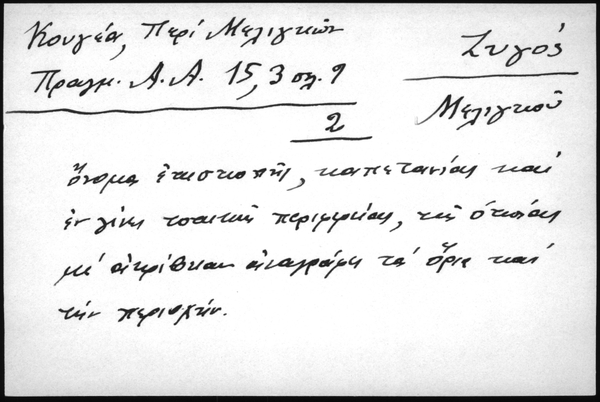 Κουγέα, Περί Μελιγκών
Πραγμ. Α.Α. 15, 3 σελ. 9
2
Ζυγός
Μελιγκοῦ
ὄνομα ἐπισκοπῆς, καπετανίας καί
ἐν γένει τοπικῆς περιφερείας, τῆς ὁποίας
μέ ἀκρίβειαν ἀναγράφει τά ὅρια καί
τήν περιοχήν.